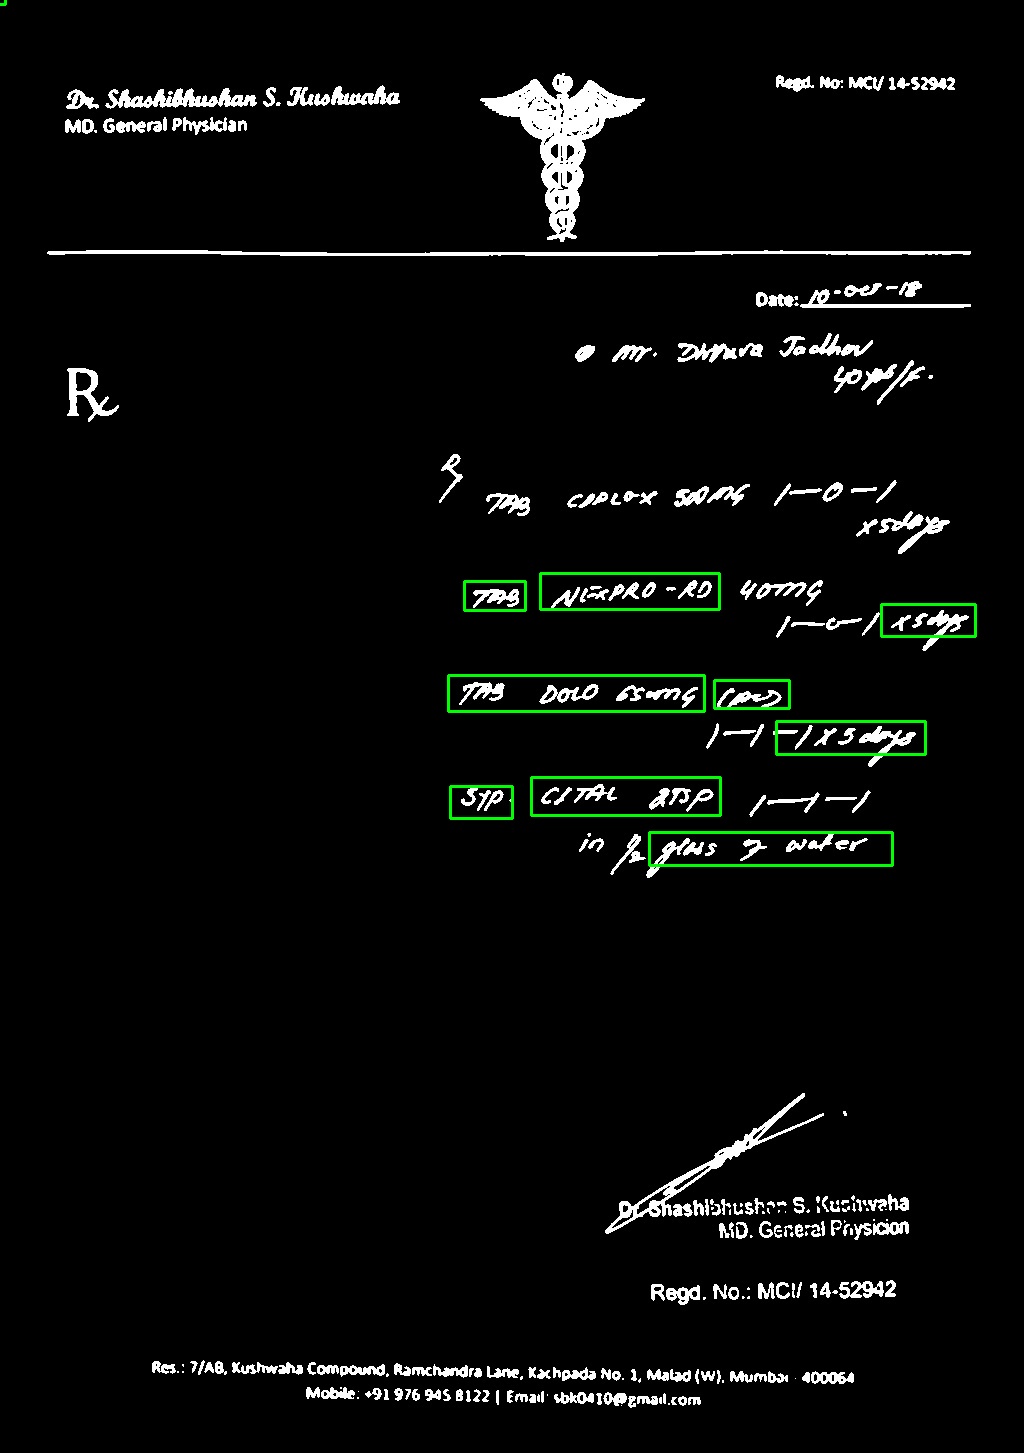 Dr. Shashibhushan S. Kushwaha
MD. General Physician
Regd. No: MCI/ 14-52942
Date: 10-Oct-18
Mr. Jadhav
40 yrs/F.
Rx
Rx
TAB CIPLOX 500MG 1-0-1
x 5 days
TAB NEXPRO-RD 40MG
1-0-1 x 5 days
TAB DOLO 650mg
1-1-1 x 3 days
SYP. CITAL 2TSP 1-1-1
in 1/2 glass of water
Dr. Shashibhushan S. Kushwaha
MD. General Physician
Regd. No.: MCI/ 14-52942
Res.: 7/AB, Kushwaha Compound, Ramchandra Lane, Kachpada No. 1, Malad (W), Mumbai - 400064
Mobile: +91 976 945 8122 | Email: sbk0410@gmail.com